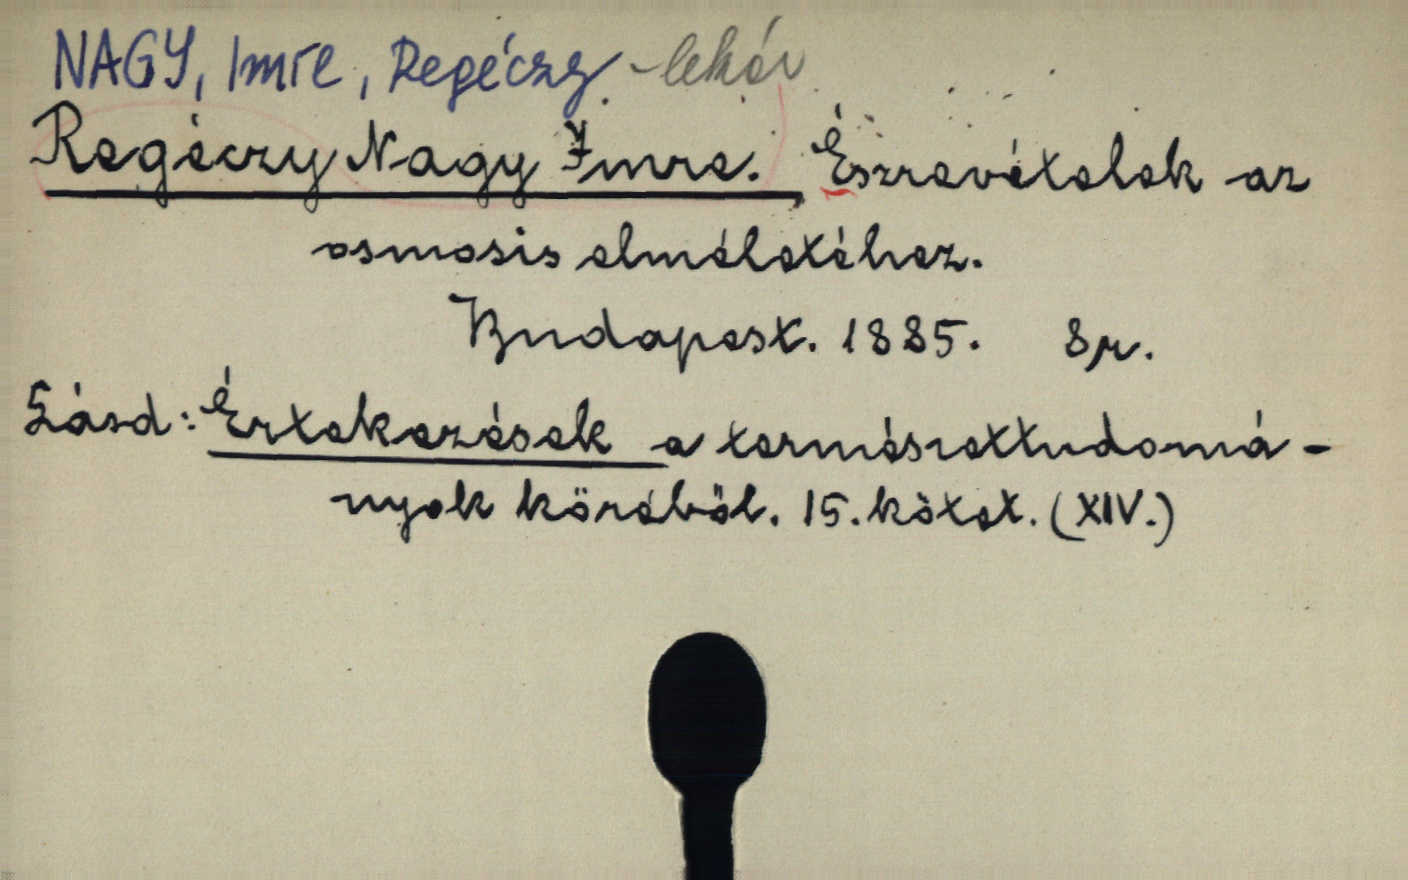 NAGY, Imre, Regéczy - lekár
Regéczy Nagy Imre. Észrevételek az
osmosis elméletéhez.
Budapest. 1885. 8r.
Lásd: Értekezések a természettudomá-
nyok köréből. 15. kötet. (XIV.)